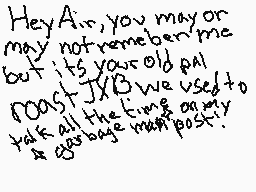 Hey Air, you may or
may not remeber me
but its your old pal
roast JXB we used to
talk all the time on my
& garbage man post!